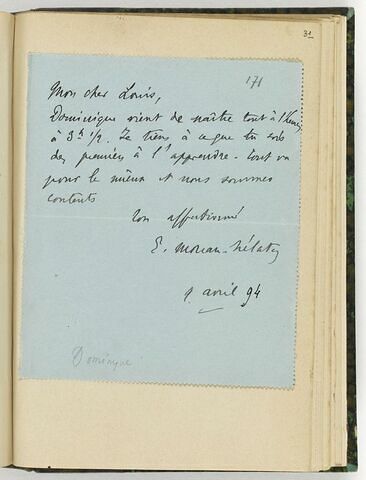 31
171
Mon cher Louis,
Dominique vient de naître tout à l'heure
à 3h 1/2. Je tiens à ce que tu sois
des premiers à l'apprendre - tout va
pour le mieux et nous sommes
contents
Ton affectionné
E. Moreau-Nélaton
9 avril 94
Dominique